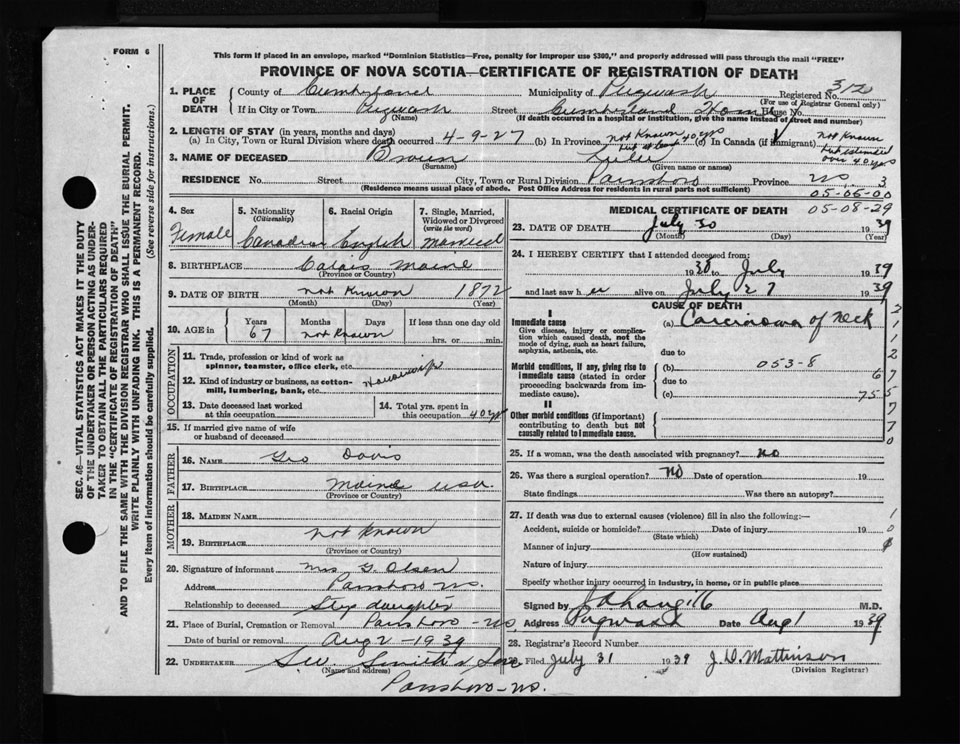 FORM 6
This form if placed in an envelope, marked "Dominion Statistics—Free, penalty for improper use $300," and properly addressed will pass through the mail "FREE"
PROVINCE OF NOVA SCOTIA—CERTIFICATE OF REGISTRATION OF DEATH
SEC. 46—VITAL STATISTICS ACT MAKES IT THE DUTY
OF THE UNDERTAKER OR PERSON ACTING AS UNDER-
TAKER TO OBTAIN ALL THE PARTICULARS REQUIRED
IN THE "CERTIFICATE OF REGISTRATION OF DEATH"
AND TO FILE THE SAME WITH THE DIVISION REGISTRAR WHO SHALL ISSUE THE BURIAL PERMIT.
WRITE PLAINLY WITH UNFADING INK. THIS IS A PERMANENT RECORD.
Every item of information should be carefully supplied. (See reverse side for instructions.)
1. PLACE OF DEATH County of Cumberland Municipality of Pugwash Registered No. 312
(For use of Registrar General only)
If in City or Town Pugwash Street Cumberland Home House No.
(Name) (If death occurred in a hospital or institution, give the name instead of street and number)
2. LENGTH OF STAY (in years, months and days)
(a) In City, Town or Rural Division where death occurred 4-9-27 (b) In Province not Known but at least 40 yrs (c) In Canada (if immigrant) not Known but estimated over 40 yrs
3. NAME OF DECEASED Brown Lulu
(Surname) (Given name or names)
RESIDENCE No. Street City, Town or Rural Division Parrsboro Province NS 3
(Residence means usual place of abode. Post Office Address for residents in rural parts not sufficient)
05-06-00
05-08-29
4. Sex Female
5. Nationality (Citizenship) Canadian
6. Racial Origin English
7. Single, Married, Widowed or Divorced (write the word) married
8. BIRTHPLACE Calais Maine
(Province or Country)
9. DATE OF BIRTH not Known 1872
(Month) (Day) (Year)
10. AGE in Years 67 Months not Known Days If less than one day old hrs. or min.
OCCUPATION
11. Trade, profession or kind of work as spinner, teamster, office clerk, etc.
12. Kind of industry or business, as cotton-mill, lumbering, bank, etc. Housewife
13. Date deceased last worked at this occupation
14. Total yrs. spent in this occupation 40 yrs
15. If married give name of wife or husband of deceased
FATHER
16. NAME Geo Davis
17. BIRTHPLACE Maine USA.
(Province or Country)
MOTHER
18. MAIDEN NAME
19. BIRTHPLACE not Known
(Province or Country)
20. Signature of informant Mrs G. Olsen
Address Parrsboro NS.
Relationship to deceased Step daughter
21. Place of Burial, Cremation or Removal Parrsboro - NS,
Date of burial or removal Aug 2 - 1939
22. UNDERTAKER Smith & Son
(Name and address)
Parrsboro - NS.
MEDICAL CERTIFICATE OF DEATH
23. DATE OF DEATH July 30 1939
(Month) (Day) (Year)
24. I HEREBY CERTIFY that I attended deceased from:
1930 July 1939
and last saw her alive on July 27 1939
CAUSE OF DEATH
I
Immediate cause
Give disease, injury or complication which caused death, not the mode of dying, such as heart failure, asphyxia, asthenia, etc.
(a) Carcinoma of Neck
due to
Morbid conditions, if any, giving rise to immediate cause (stated in order proceeding backwards from immediate cause).
(b) 053-8
due to
(c) 755
II
Other morbid conditions (if important) contributing to death but not causally related to immediate cause.
25. If a woman, was the death associated with pregnancy? no
26. Was there a surgical operation? No Date of operation 19
State findings Was there an autopsy?
27. If death was due to external causes (violence) fill in also the following:—
Accident, suicide or homicide? Date of injury 19
(State which)
Manner of injury
(How sustained)
Nature of injury
Specify whether injury occurred in industry, in home, or in public place
Signed by M.D.
Address Pugwash Date Aug 1 1939
28. Registrar's Record Number
Filed July 31 1939 J. D. Mattinson
(Division Registrar)